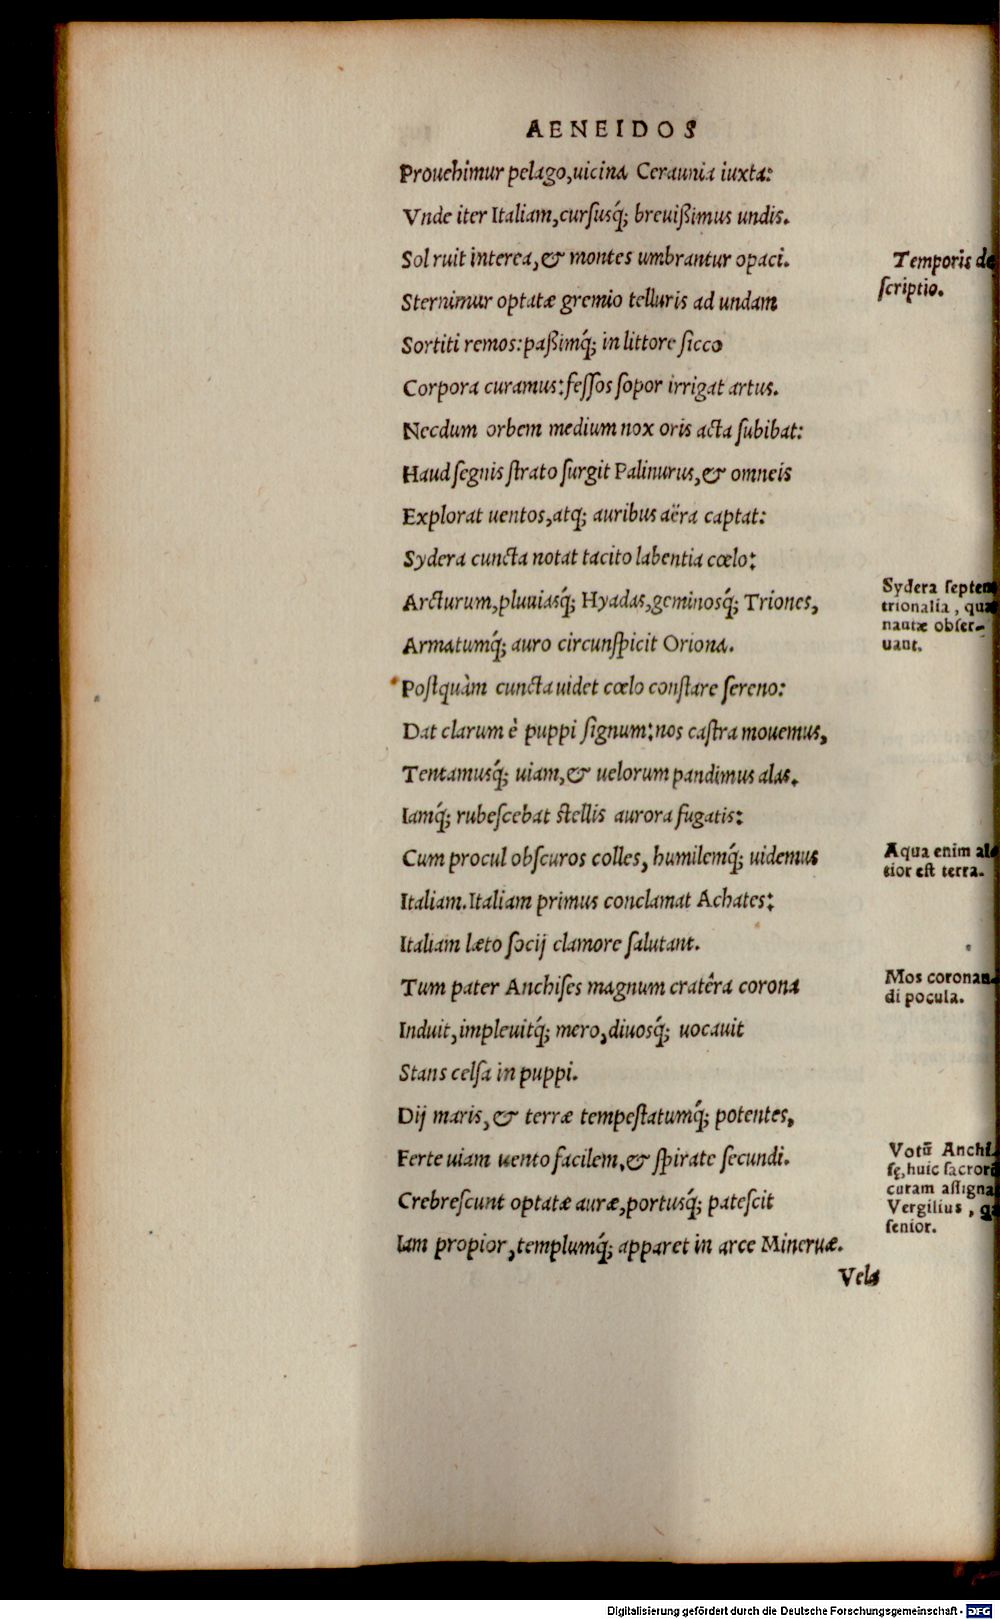 AENEIDOS
Prouehimur pelago,uicina Ceraunia iuxta:
Vnde iter Italiam,cursusq́; breuißimus undis.
Sol ruit interea,& montes umbrantur opaci.
Temporis de
scriptio.
Sternimur optatæ gremio telluris ad undam
Sortiti remos:paßimq́; in littore sicco
Corpora curamus:fessos sopor irrigat artus.
Necdum orbem medium nox oris acta subibat:
Haud segnis strato surgit Palinurus,& omneis
Explorat uentos,atq; auribus aëra captat:
Sydera cuncta notat tacito labentia cœlo:
Arcturum,pluuiasq́; Hyadas,geminosq́; Triones,
Sydera septen
trionalia, quæ
nautæ obser-
uant.
Armatumq́; auro circunspicit Oriona.
Postquàm cuncta uidet cœlo constare sereno:
Dat clarum è puppi signum:nos castra mouemus,
Tentamusq́; uiam,& uelorum pandimus alas.
Iamq́; rubescebat stellis aurora fugatis:
Cum procul obscuros colles, humilemq́; uidemus
Aqua enim al
tior est terra.
Italiam.Italiam primus conclamat Achates:
Italiam læto socij clamore salutant.
Tum pater Anchises magnum cratêra corona
Mos coronan-
di pocula.
Induit,impleuitq́; mero,diuosq́; uocauit
Stans celsa in puppi.
Dij maris,& terræ tempestatumq́; potentes,
Ferte uiam uento facilem,& spirate secundi.
Votū Anchi
sę,huic sacrorū
curam assigna
Vergilius, 
senior.
Crebrescunt optatæ auræ,portusq́; patescit
Iam propior,templumq́; apparet in arce Mineruæ.
Vela
Digitalisierung gefördert durch die Deutsche Forschungsgemeinschaft - DFG